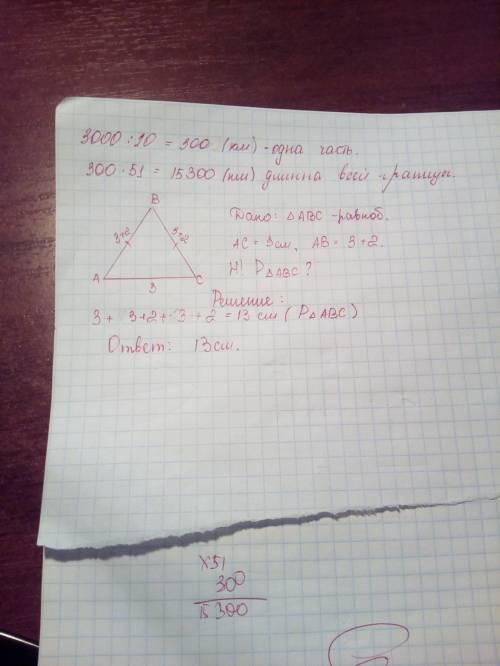 3000 : 10 = 300 (км) - одна часть.
300 · 51 = 15300 (км) длинна всей границы.
B
3+2
3+2
A
C
3
Дано: △ABC - равноб.
AC = 3 см, AB = 3+2.
Н! P△ABC ?
Решение:
3 + 3+2 + 3 + 2 = 13 см (P△ABC)
Ответ: 13 см.
×51
300
15300